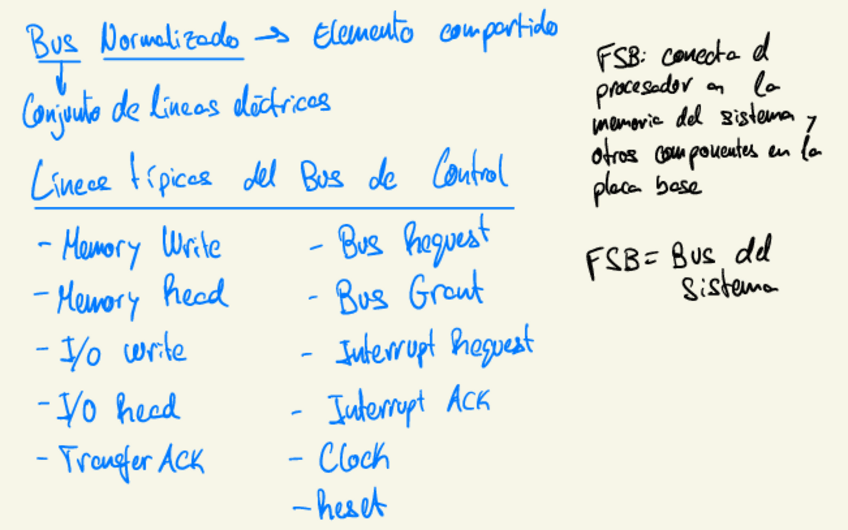 Bus Normalizado → Elemento compartido
Conjunto de líneas eléctricas
Líneas típicas del Bus de Control
- Memory Write
- Memory Read
- I/O Write
- I/O Read
- Transfer ACK
- Bus Request
- Bus Grant
- Interrupt Request
- Interrupt ACK
- Clock
- Reset
FSB: conecta el
procesador a la
memoria del sistema y
otros componentes en la
placa base
FSB = Bus del
Sistema